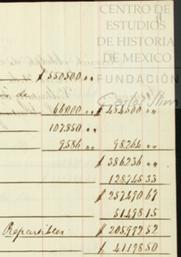 CENTRO DE
ESTUDIOS
DE HISTORIA
DE MEXICO
FUNDACIÓN
Carlos Slim
$ 550500 ,,
de
66000 ,, $ 484500 ,,
107850 ,,
9586 ,, 98264 ,,
$ 386236 ,,
128745 33
$ 257490 67
51498 15
Repartibles $ 205992 52
$ 41198 50